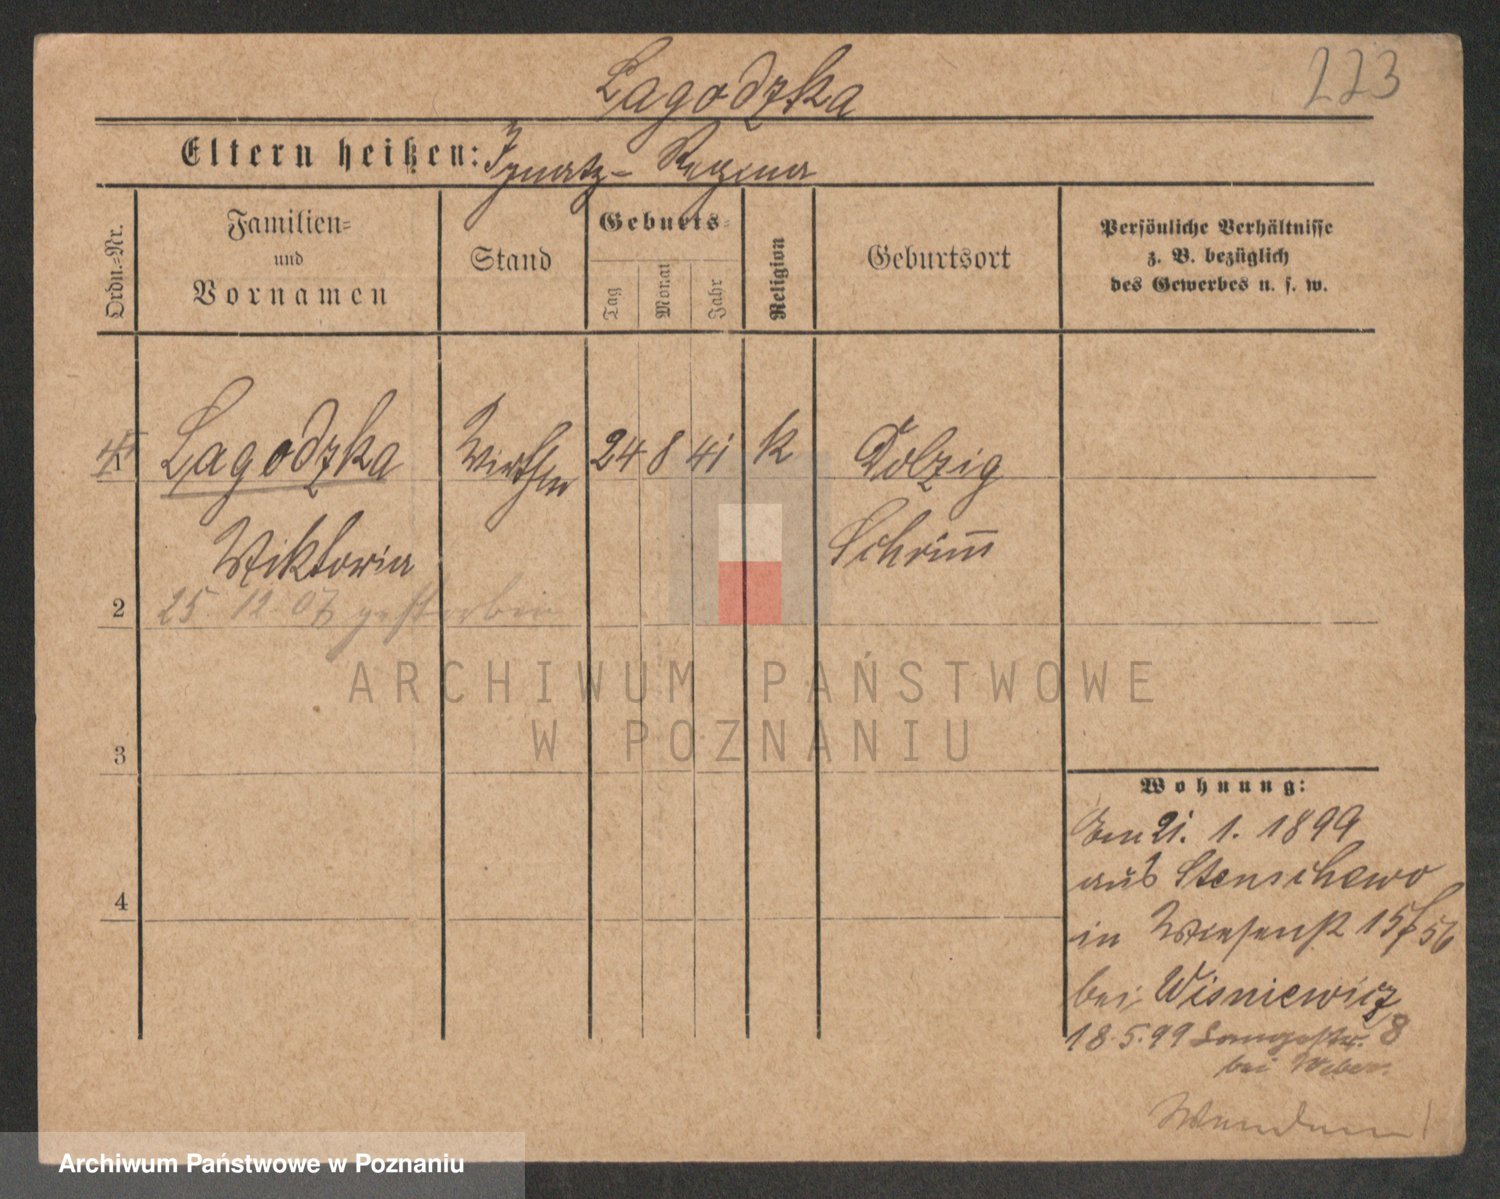 Lagodzka
223
Eltern heißen: Ignatz - Regina
Ordn.=Nr.
Familien=
und
Vornamen
Stand
Geburts=
Tag
Monat
Jahr
Religion
Geburtsort
Persönliche Verhältnisse
z. B. bezüglich
des Gewerbes u. s. w.
1 Lagodzka Wirthin 24 8 41 k Dolzig
Wiktoria Schrimm
2 25 12. 07 gestorben
ARCHIWUM PAŃSTWOWE
W POZNANIU
3
Wohnung:
21. 1. 1899
aus Stenschewo
4
in Wiesenstr 15
bei Wisniewicz
18.5.99 Langestr. 8
bei Weber.
Wenden!
Archiwum Państwowe w Poznaniu